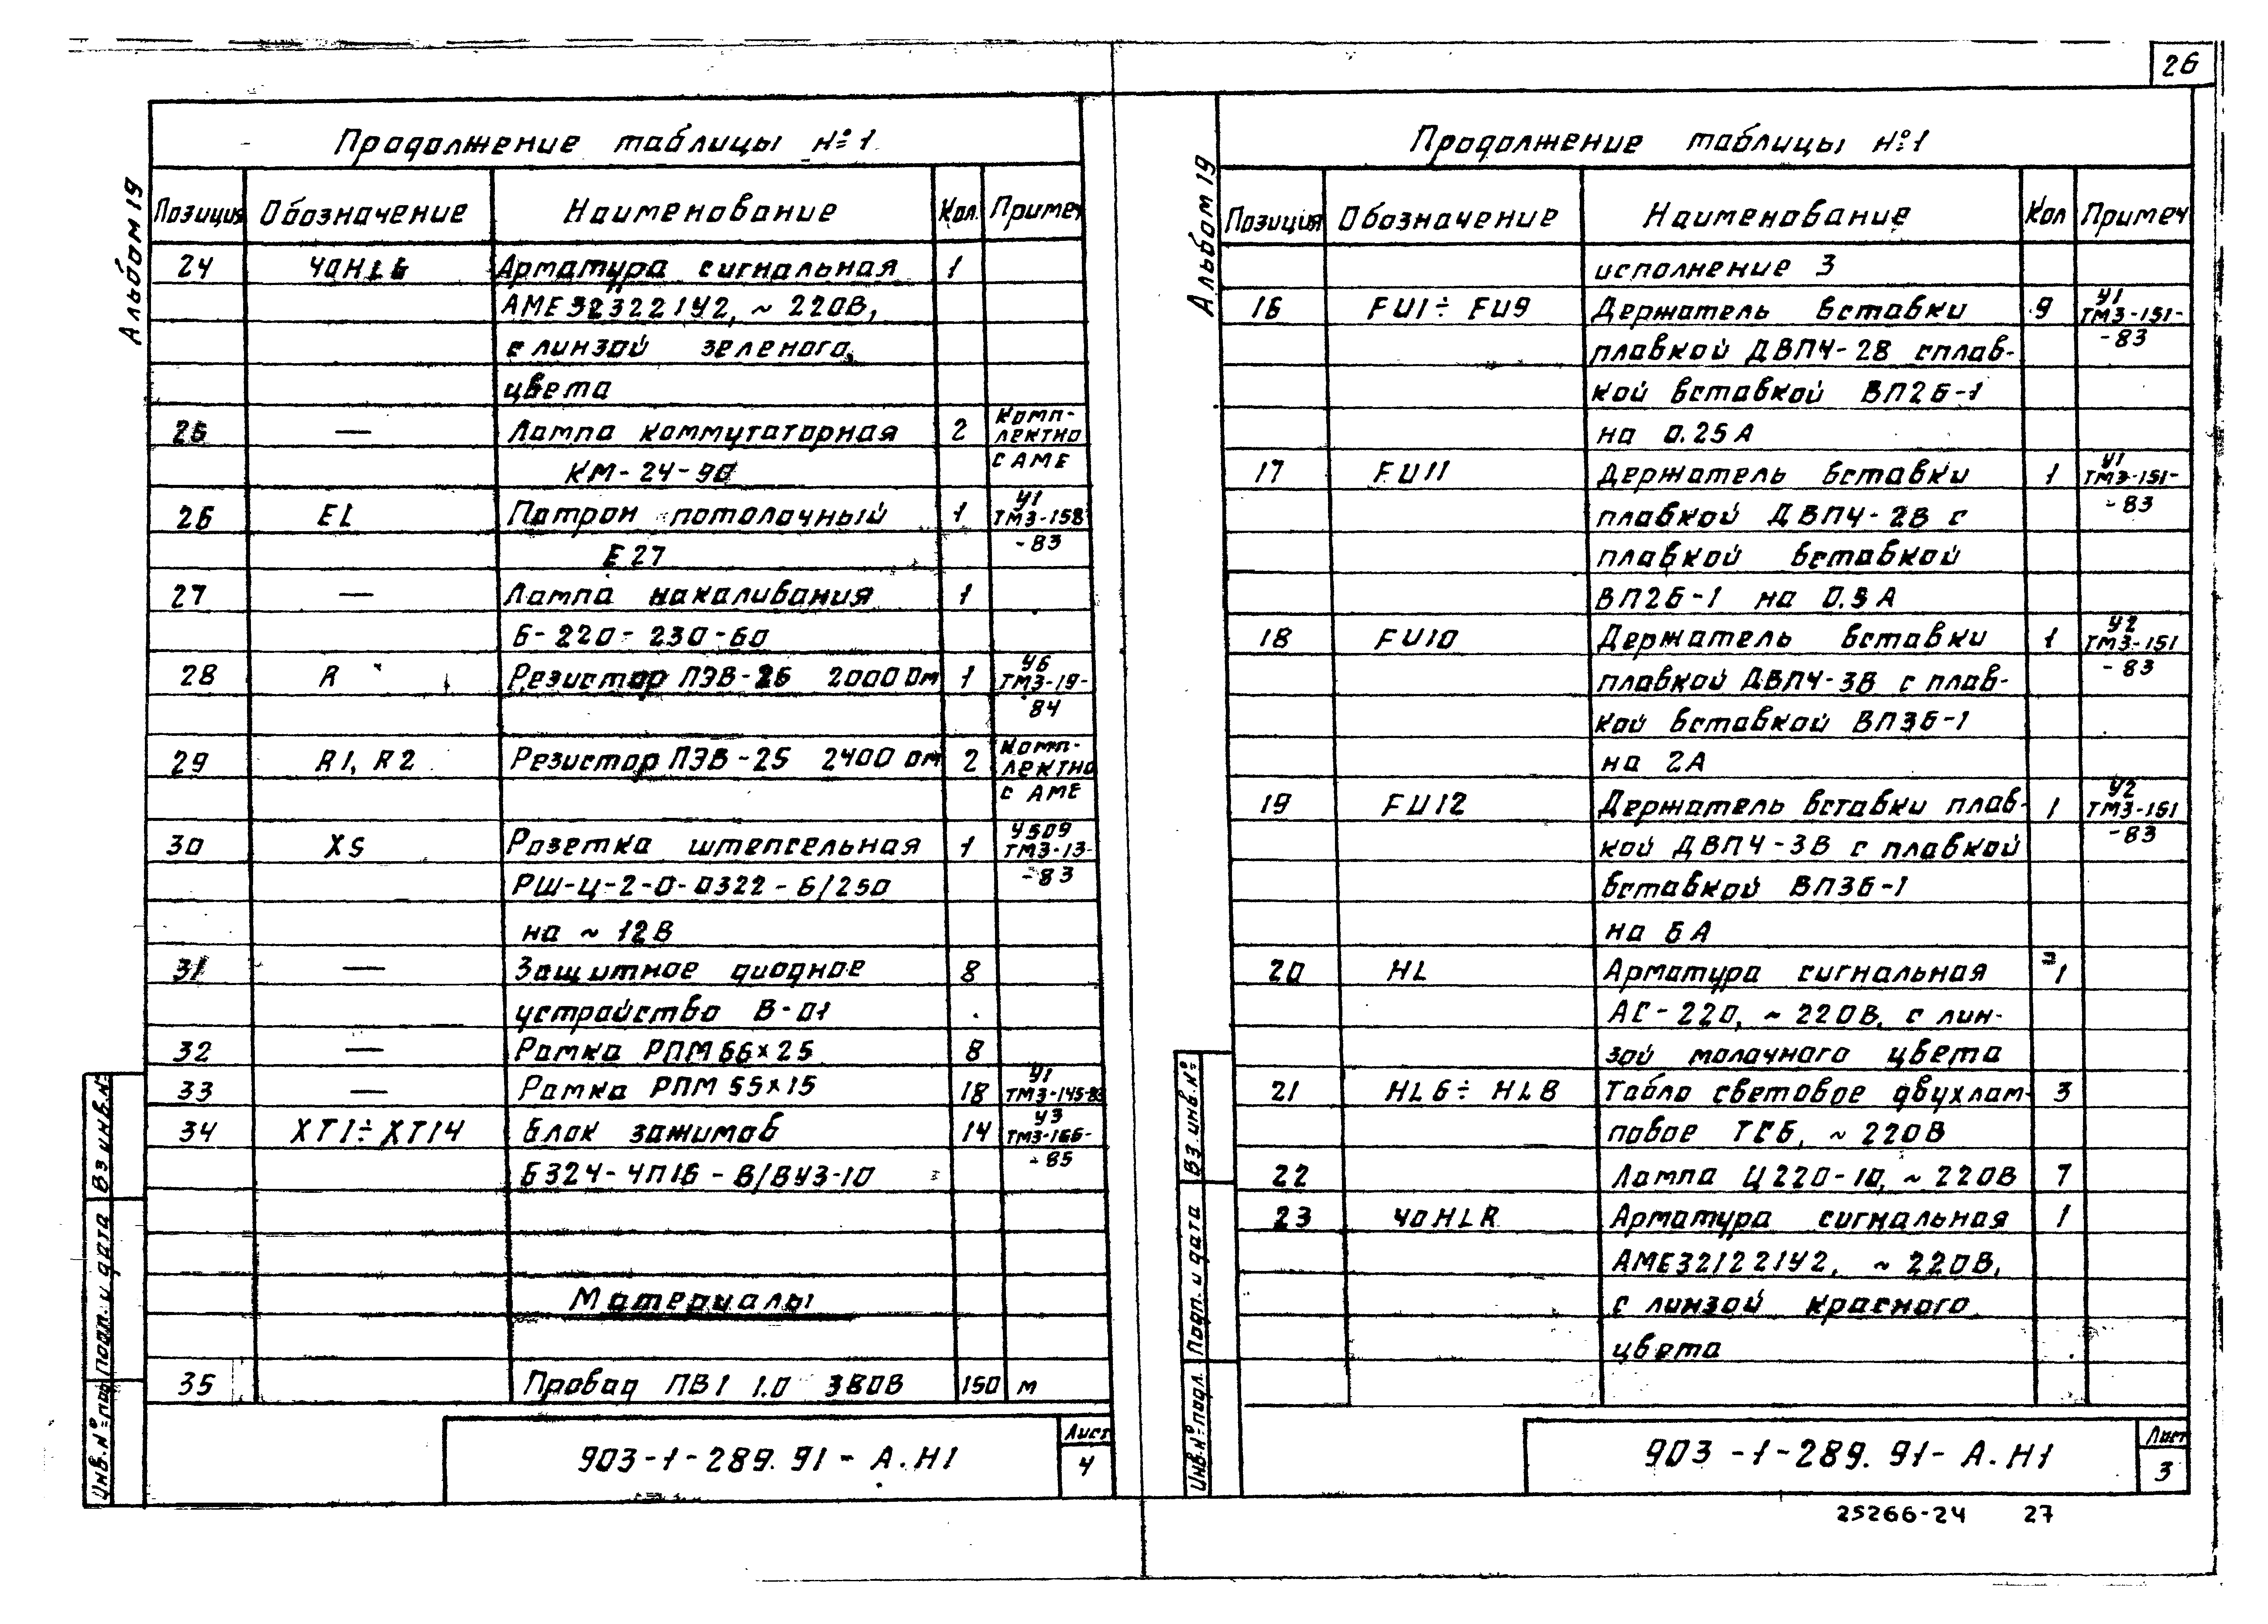 26
Альбом 19
Продолжение таблицы №1
Позиция Обозначение Наименование Кол. Примеч
24 40HLG Арматура сигнальная 1
АМЕ323221У2, ~ 220В,
с линзой зеленого
цвета
25 — Лампа коммутаторная 2 Комп-
лектно
КМ-24-90 с АМЕ
26 EL Патрон потолочный 1 У1
ТМ3-158
Е27 -83
27 — Лампа накаливания 1
Б-220-230-60
28 R Резистор ПЭВ-25 2000 Ом 1 У6
ТМ3-19-
84
29 R1, R2 Резистор ПЭВ-25 2400 Ом 2 Комп-
лектно
с АМЕ
30 XS Розетка штепсельная 1 У509
ТМ3-13-
РШ-Ц-2-0-0322-6/250 -83
на ~ 12В
31 — Защитное диодное 8
устройство В-01
32 — Рамка РПМ 66×25 8
33 — Рамка РПМ 55×15 18 У1
ТМ3-145-83
34 XT1÷XT14 Блок зажимов 14 У3
ТМ3-166-
Б324-4П16-В/ВУ3-10 -85
Материалы
35 Провод ПВ1 1.0 380В 150 м
903-1-289.91-А.Н1
Лист
4
Инв.№ под Подп. и дата Вз инв.№
Альбом 19
Продолжение таблицы №1
Позиция Обозначение Наименование Кол Примеч
исполнение 3
16 FU1÷FU9 Держатель вставки 9 У1
ТМ3-151-
плавкой ДВП4-2В с плав- -83
кой вставкой ВП2Б-1
на 0.25А
17 FU11 Держатель вставки 1 У1
ТМ3-151-
плавкой ДВП4-2В с -83
плавкой вставкой
ВП2Б-1 на 0.5А
18 FU10 Держатель вставки 1 У2
ТМ3-151
плавкой ДВП4-3В с плав- -83
кой вставкой ВП3Б-1
на 2А
19 FU12 Держатель вставки плав- 1 У2
ТМ3-151
кой ДВП4-3В с плавкой -83
вставкой ВП3Б-1
на 6А
20 HL Арматура сигнальная 1
АС-220, ~ 220В, с лин-
зой молочного цвета
21 HL6÷HL8 Табло световое двухлам- 3
повое ТСБ, ~ 220В
22 Лампа Ц220-10, ~ 220В 7
23 40HLR Арматура сигнальная 1
АМЕ321221У2, ~ 220В,
с линзой красного
цвета
903-1-289.91-А.Н1
Лист
3
Инв.№ подл. Подп. и дата Вз. инв.№
25266-24 27